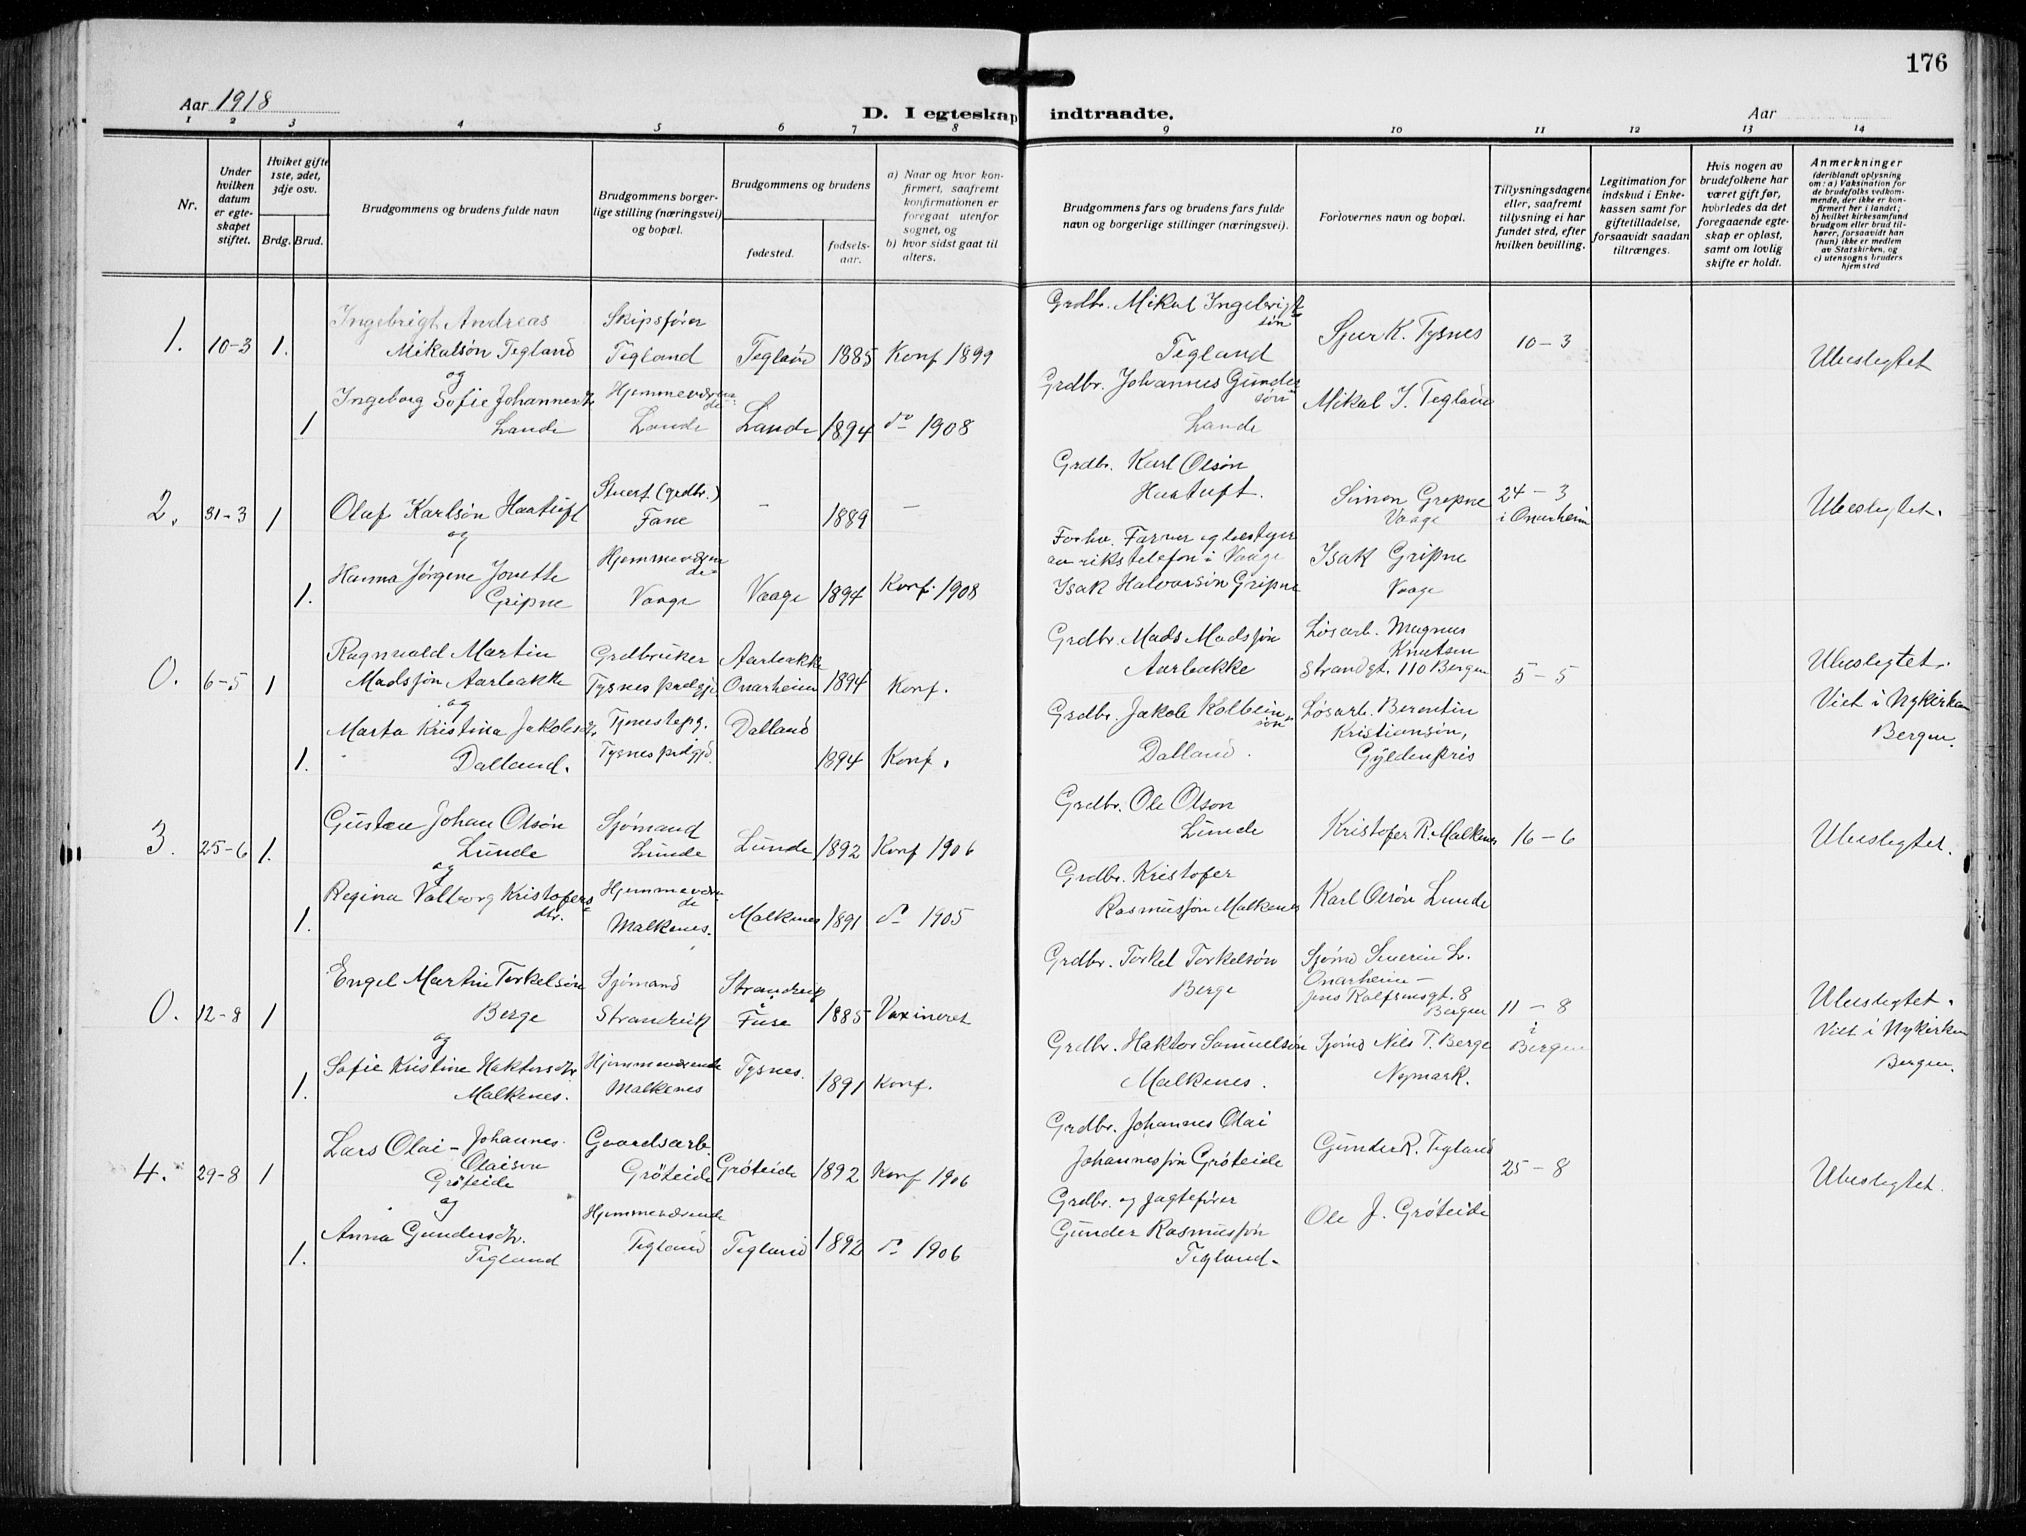 176
Aar 1918
D. I egteskap indtraadte.
Aar
1 2 3 4 5 6 7 8 9 10 11 12 13 14
Nr.
Under hvilken datum er egteskapet stiftet.
Hviket gifte 1ste, 2det, 3dje osv.
Brdg. Brud.
Brudgommens og brudens fulde navn
Brudgommens borgerlige stilling (næringsvei) og bopæl.
Brudgommens og brudens
fødested.
fødselsaar.
a) Naar og hvor konfirmert, saafremt konfirmationen er foregaat utenfor sognet, og
b) hvor sidst gaat til alters.
Brudgommens fars og brudens fars fulde navn og borgerlige stillinger (næringsvei).
Forlovernes navn og bopæl.
Tillysningsdagene eller, saafremt tillysning ei har fundet sted, efter hvilken bevilling.
Legitimation for indskud i Enkekassen samt for giftetilladelse, forsaavidt saadan tiltrænges.
Hvis nogen av brudefolkene har været gift før, hvorledes da det foregaaende egteskap er opløst, samt om lovlig skifte er holdt.
Anmerkninger
(deriblandt oplysning om: a) Vaksination for de brudefolks vedkommende, der ikke er konfirmert her i landet; b) hvilket kirkesamfund brudgom eller brud tilhører, forsaavidt han (hun) ikke er medlem av Statskirken, og c) utensogns bruders hjemsted
1. 10-3 1. Ingebrigt Andreas Mikalsøn Tegland
Skipsfører Tegland Tegland 1885 Konf 1899
Grdbr. Mikal Ingebrigtsøn Tegland
Sjur K. Tysnes 10-3 Ubeslegtet
og
1 Ingeborg Sofie Johannesdtr Lande
Hjemmeværende Lande Lande 1894 do 1908
Grdbr. Johannes Gundersøn Lande
Mikal I. Tegland
2. 31-3 1 Olaf Karlsøn Haatuft
Stuert (grdbr.) Fane - 1889 -
Grdbr. Karl Olsøn Haatuft.
Simon Gripne Vaage
24-3 i Onarheim Ubeslegtet.
og
1. Hanna Jørgene Jonette Gripne
Hjemmeværende Vaage Vaage 1894 Konf. 1908
Forhv. Farver og bestyrer av rikstelefon i Vaage Isak Halvorsøn Gripne
Isak Gripne Vaage
0. 6-5 1 Ragnvald Martin Madssøn Aarbakke
Grdbruker Tysnes prdgjd. Aarbakke Onarheim 1894 Konf.
Grdbr. Mads Madssøn Aarbakke
Løsarb. Magnus Knutsen Strandgt. 110 Bergen
5-5 Ubeslegtet.
og
1. Marta Kristina Jakobsdtr. Dalland.
Tjenestepg. Tysnes prdgjd. Dalland 1894 Konf.
Grdbr. Jakob Kolbeinsøn Dalland.
Løsarb. Berentin Kristiansøn, Gyldenpris
Viet i Nykirken Bergen.
3. 25-6 1. Gustav Johan Olsøn Lunde
Sjømand Lunde Lunde 1892 Konf 1906
Grdbr. Ole Olson Lunde
Kristofer R. Malkenes 16-6 Ubeslegtet.
og
1. Regina Valborg Kristofersdtr.
Hjemmeværende Malkenes. Malkenes 1891 do 1905
Grdbr. Kristofer Rasmussøn Malkenes
Karl Olsøn Lunde
0. 12-8 1 Engel Martin Torkelsøn Berge
Sjømand Strandvik Strandvik i Fuse 1885 Vaxineret
Grdbr. Torkel Torkelsøn Berge
Sjømd Severin L. Onarheim - Jens Rolfsensgt. 8 Bergen
11-8 i Bergen Ubeslegtet.
og
1. Sofie Kristine Haktorsdtr Malkenes.
Hjemmeværende Malkenes Tysnes. 1891 Konf.
Grdbr. Haktor Samuelsøn Malkenes.
Sjømd Nils T. Berge Nymark.
Viet i Nykirken Bergen.
4. 29-8 1 Lars Olai - Johannes Olaison Grøteide
Gaardsarb. Grøteide Grøteide 1892 Konf 1906
Grdbr. Johannes Olai Johannessøn Grøteide
Gunder R. Tegland 25-8 Ubeslegtet.
og
1. Anna Gundersdtr. Tegland
Hjemmeværende Tegland Tegland 1892 do 1906
Grdbr. og Jagtefører Gunder Rasmussøn Tegland.
Ole J. Grøteide